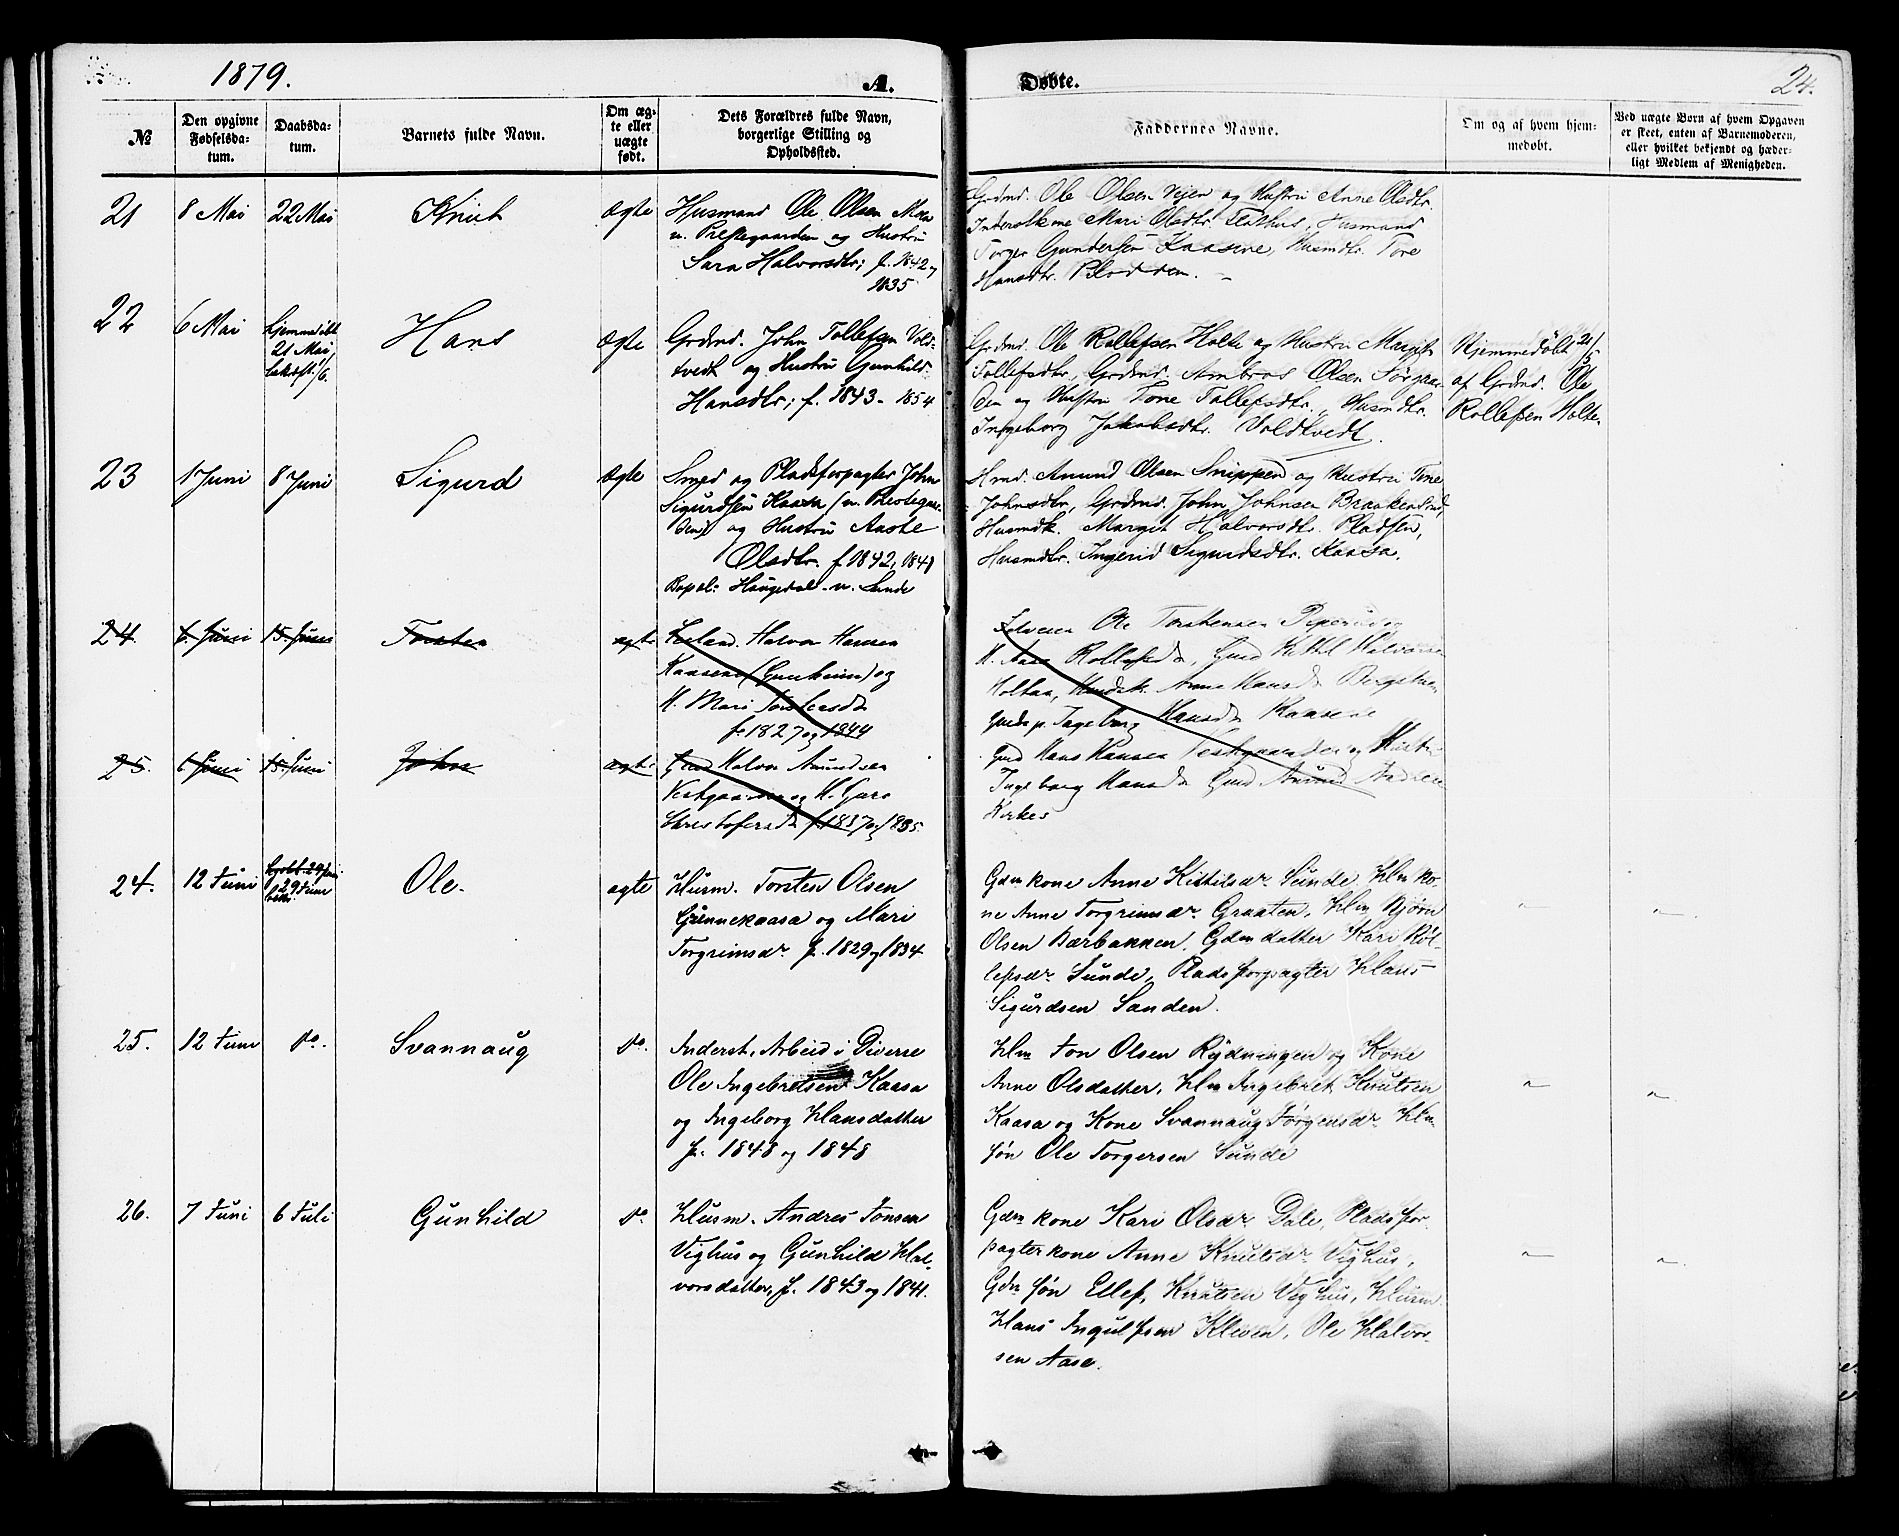 1879.
A.
Døbte.
24.
№
Den opgivne Fødselsda-tum.
Daabsda-tum.
Barnets fulde Navn.
Om æg-te eller uægte født.
Dets Forældres fulde Navn, borgerlige Stilling og Opholdssted.
Faddernes Navne.
Om og af hvem hjem-medøbt.
Ved uægte Børn af hvem Opgaven er skeet, enten af Barnemoderen, eller hvilket bekjendt og hæder-ligt Medlem af Menigheden.
21
8 Mai
22 Mai
Knut
Ægte
Husmand Ole Olsen Moen
u. Prestegaarden og Hustru
Sara Halvorsdtr; f. 1842 og
1835
Grdmd. Ole Olsen Vejen og Hustru Anne Olsdtr.
Inderstkone Mari Olsdtr. Husmand
Torger Gundersen Kaasene, Husmdtr. Tore
Hansdtr.
22
6 Mai
Hjemmedøbt
21 Mai,
Hans
Ægte
Grdmd. John Tollefsen Vold-
tvedt og Hustru Gunhild
Hansdtr; f. 1843 - 1854
Grdmd. Ole Rollefsen Holte og Hustru Margit
Tollefsdtr, Grdmd. Ambros Olsen Sørgaar-
den og Hustru Tone Tollefsdtr., Husmdtr.
Ingeborg Jakobsdtr. Voldtvedt.
Hjemmedøbt 21/5
af Grdmd. Ole
Rollefsen Holte
23
1 Juni
8 Juni
Sigurd
Ægte
Smed og Pladsforpagter John
Sigurdsen Kaasa (u. Prestegaar-
den) og Hustru Aaste
Olsdtr. f. 1842, 1841
Bopæl: Haugedal u. Sunde
Hmd. Amund Olsen Snippen og Hustru Tone
Johnsdtr, Grdmd. John Johnsen Braakensrud,
Husmdk. Margit Halvorsdtr. Pladsen,
Husmdtr. Ingerid Sigurdsdtr. Kaasa.
24.
6. Juni
15. Juni
Torsten
ægte
Halvor Hansen
Kaasene (Gunheim) og
H. Mari Torstensdr
f. 1827 og 1844
Ole Torstensen
H. Aase Rollefsdr, Gmd Kittil Halvorsen
Holtan, Anne Hansdr
Ingeborg Hansdr Kaasene
25.
6. Juni
15. Juni
John
ægte
Gmd Halvor Amundsen
Vestgaarden og H. Guro
Christofersdr f. 1837 og 1835.
Gmd Hans Hansen Vestgaarden og Hustr.
Ingeborg Hansdr Gmd Amund
24.
12 Juni
29 Juni
Ole.
ægte
Husm. Torsten Olsen
Grinnekaasa og Mari
Torgrimsdr. f. 1829 og 1834
Gdmkone Anne Kittilsdr. Sunde. Hlmko-
ne Anne Torgrimsdr. Graaten, Hlm Bjørn
Olsen Bærbakken, Gdmdatter Kari Røl-
lefsdr Sunde, Pladsforpagter Hans
Sigurdsen Sanden.
25.
12 Juni
do.
Svannaug
do.
Inderst, Arbeid i Diverse
Ole Ingebretsen Kaasa
og Ingeborg Hansdatter
f. 1848 og 1848
Hlm Jon Olsen Rydningen og Kone
Anne Olsdatter, Hlm Ingebret Knutsen
Kaasa og Kone Svannaug Jørgensdr. Hlm
søn Ole Torgersen Sunde
26.
7 Juni
6 Juli
Gunhild
do.
Husm. Andres Jonsen
Vighus og Gunhild Hal-
vorsdatter, f. 1843 og 1841.
Gdmkone Kari Olsdr. Dale, Pladsfor-
pagterkone Anne Knutsdr. Vighus,
Gdmsøn Ellef Knutsen Vighus, Husm.
Hans Ingulfsen Kleven, Ole Halvor-
sen Aase.